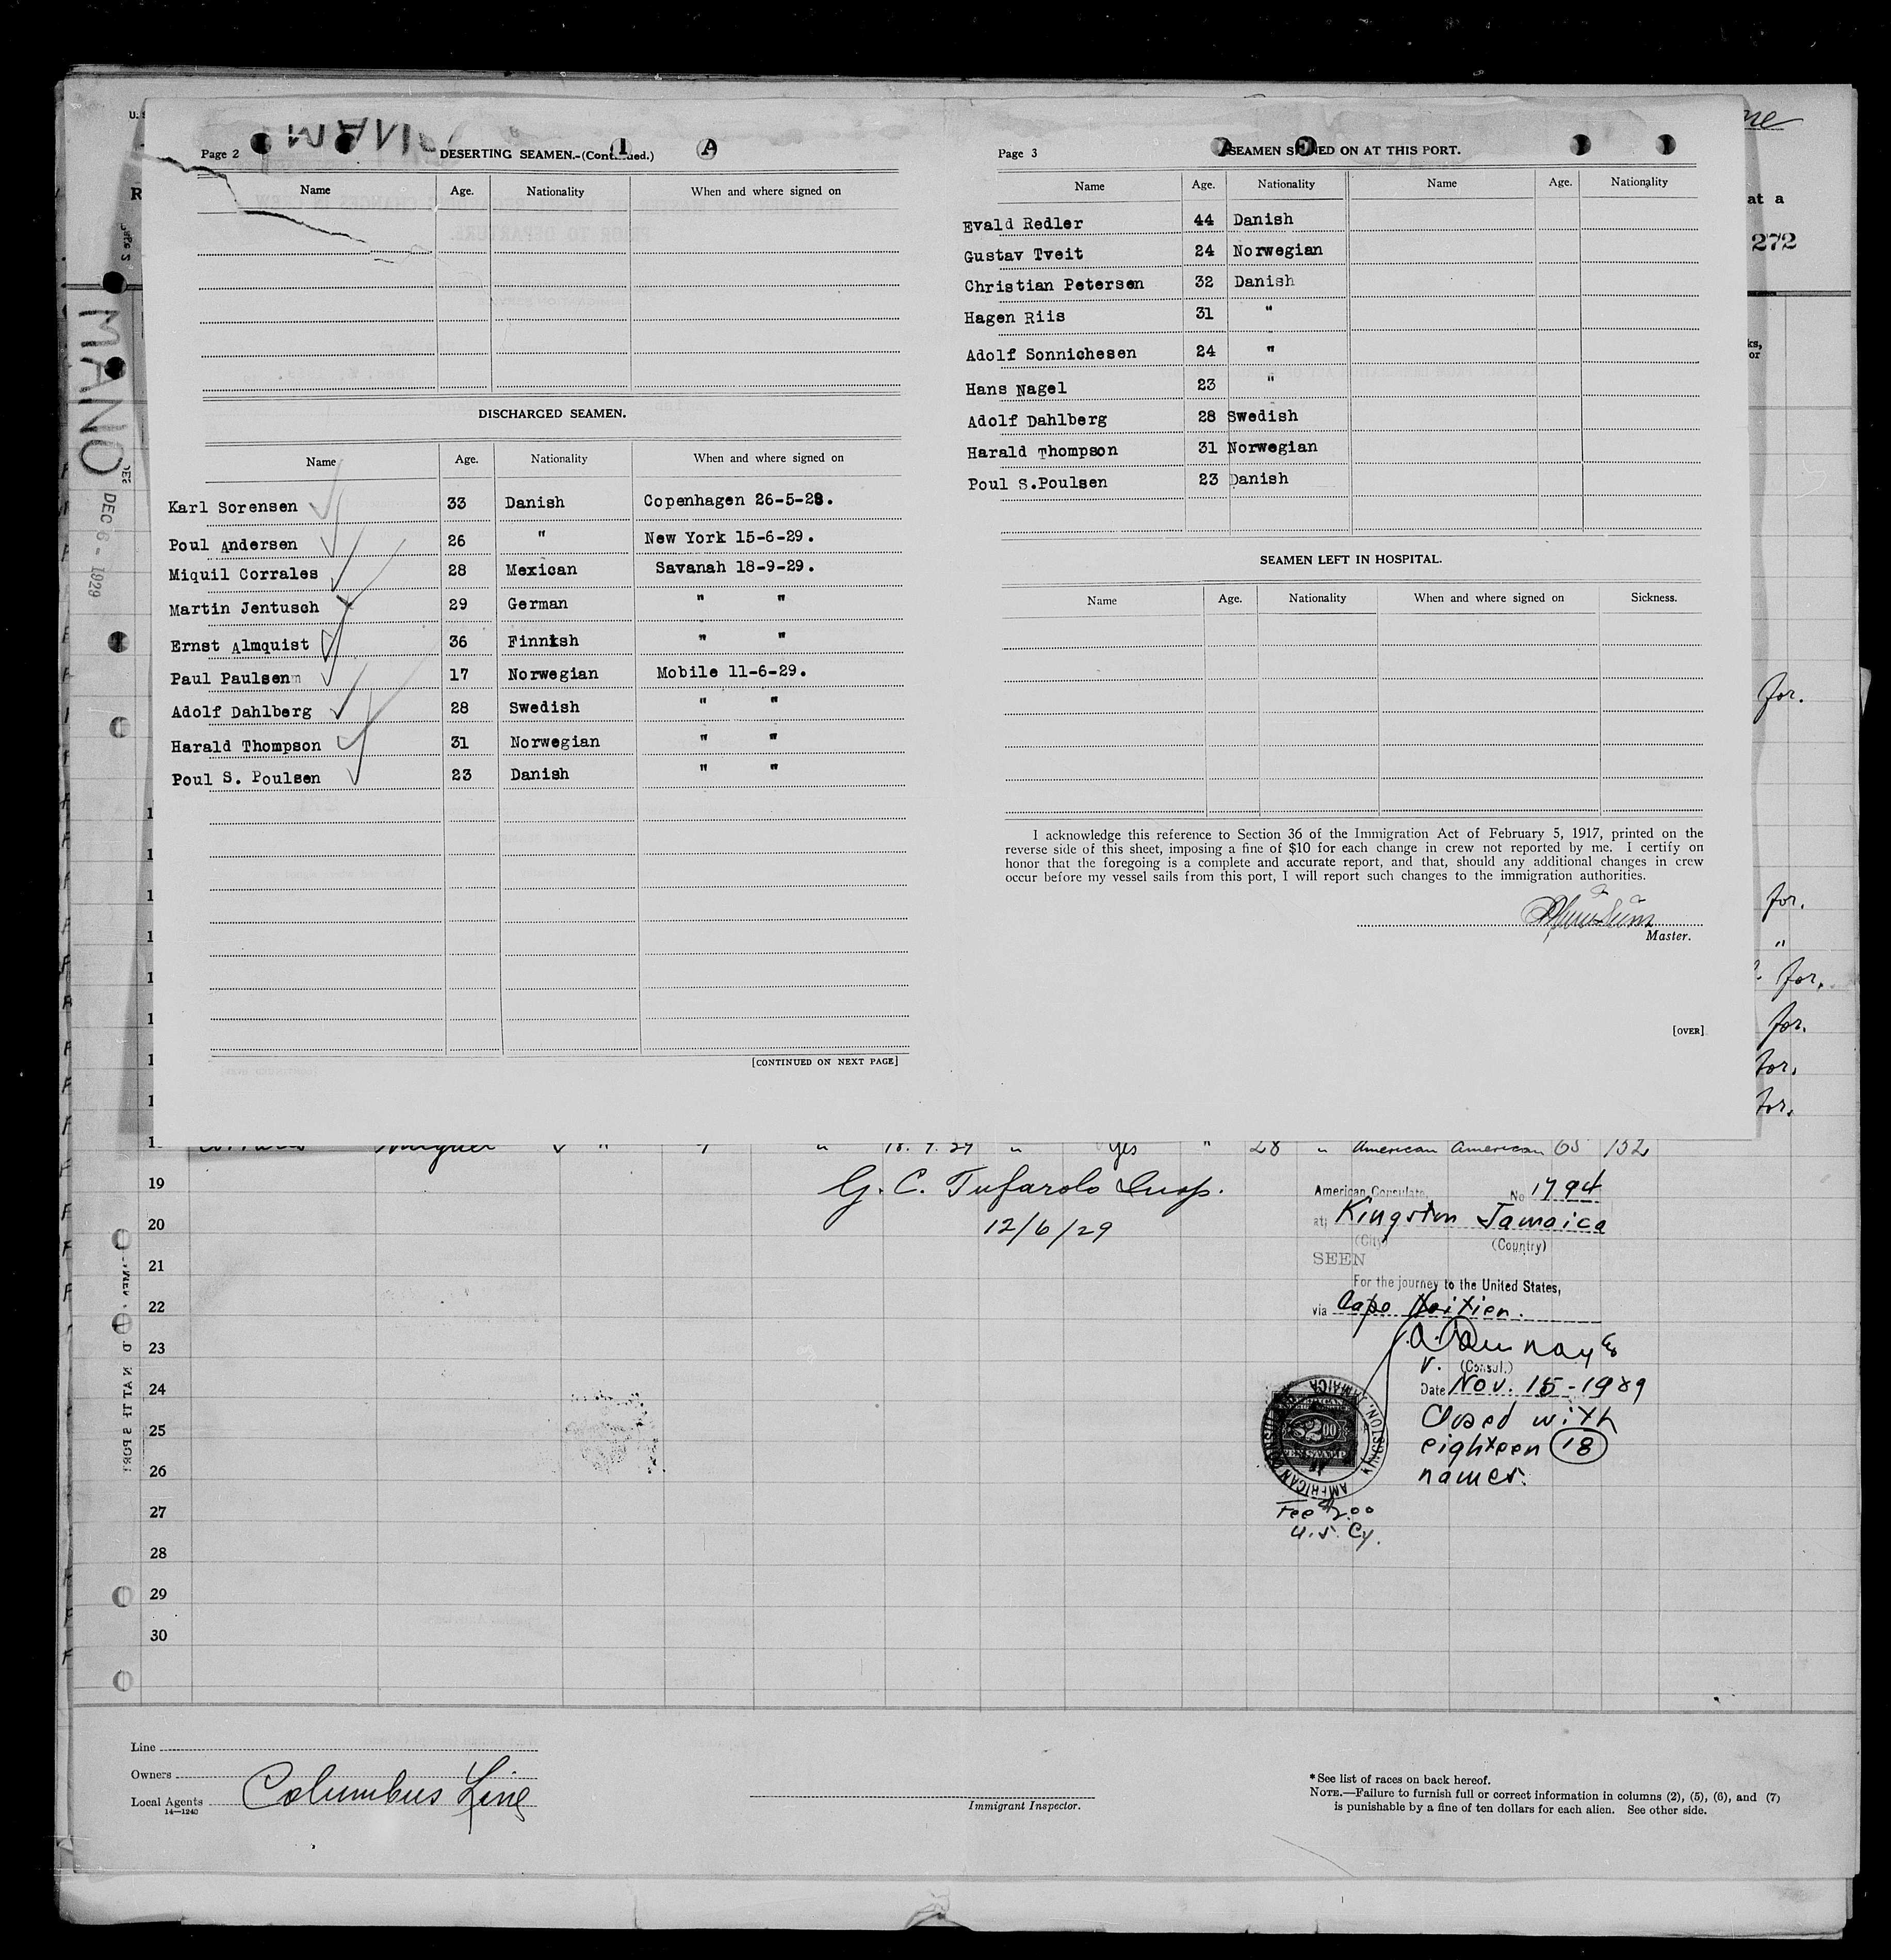 Page 2
DESERTING SEAMEN.-(Continued.)
Name Age. Nationality When and where signed on
DISCHARGED SEAMEN.
Name Age. Nationality When and where signed on
Karl Sorensen 33 Danish Copenhagen 26-5-28.
Poul Andersen 26 " New York 15-6-29.
Miquil Corrales 28 Mexican Savanah 18-9-29.
Martin Jentusch 29 German " "
Ernst Almquist 36 Finnish " "
Paul Paulsen 17 Norwegian Mobile 11-6-29.
Adolf Dahlberg 28 Swedish " "
Harald Thompson 31 Norwegian " "
Poul S. Poulsen 23 Danish " "
[CONTINUED ON NEXT PAGE]
Page 3
SEAMEN SIGNED ON AT THIS PORT.
Name Age. Nationality Name Age. Nationality
Evald Redler 44 Danish
Gustav Tveit 24 Norwegian
Christian Petersen 32 Danish
Hagen Riis 31 "
Adolf Sonnichesen 24 "
Hans Nagel 23 "
Adolf Dahlberg 28 Swedish
Harald Thompson 31 Norwegian
Poul S.Poulsen 23 Danish
SEAMEN LEFT IN HOSPITAL.
Name Age. Nationality When and where signed on Sickness.
I acknowledge this reference to Section 36 of the Immigration Act of February 5, 1917, printed on the
reverse side of this sheet, imposing a fine of $10 for each change in crew not reported by me. I certify on
honor that the foregoing is a complete and accurate report, and that, should any additional changes in crew
occur before my vessel sails from this port, I will report such changes to the immigration authorities.
Master.
[OVER]
at a
272
MANO
DEC 6 - 1929
for.
for.
"
for.
for.
for.
for.
Miguel " " 18.9.29 " Yes " 28 " American American 65 152
19
20
21
22
23
24
25
26
27
28
29
30
G. C. Tufarolo Insp.
12/6/29
American Consulate, No 1794
at; Kingston Jamaica
(City) (Country)
SEEN
For the journey to the United States,
via Cape Haitien.
V. (Consul.)
Date Nov. 15-1929
Closed with
eighteen 18
names.
$2.00
Fee $2.00
U.S. Cy.
Line
Owners
Local Agents Columbus Line
14—1240
Immigrant Inspector.
* See list of races on back hereof.
NOTE.—Failure to furnish full or correct information in columns (2), (5), (6), and (7)
is punishable by a fine of ten dollars for each alien. See other side.